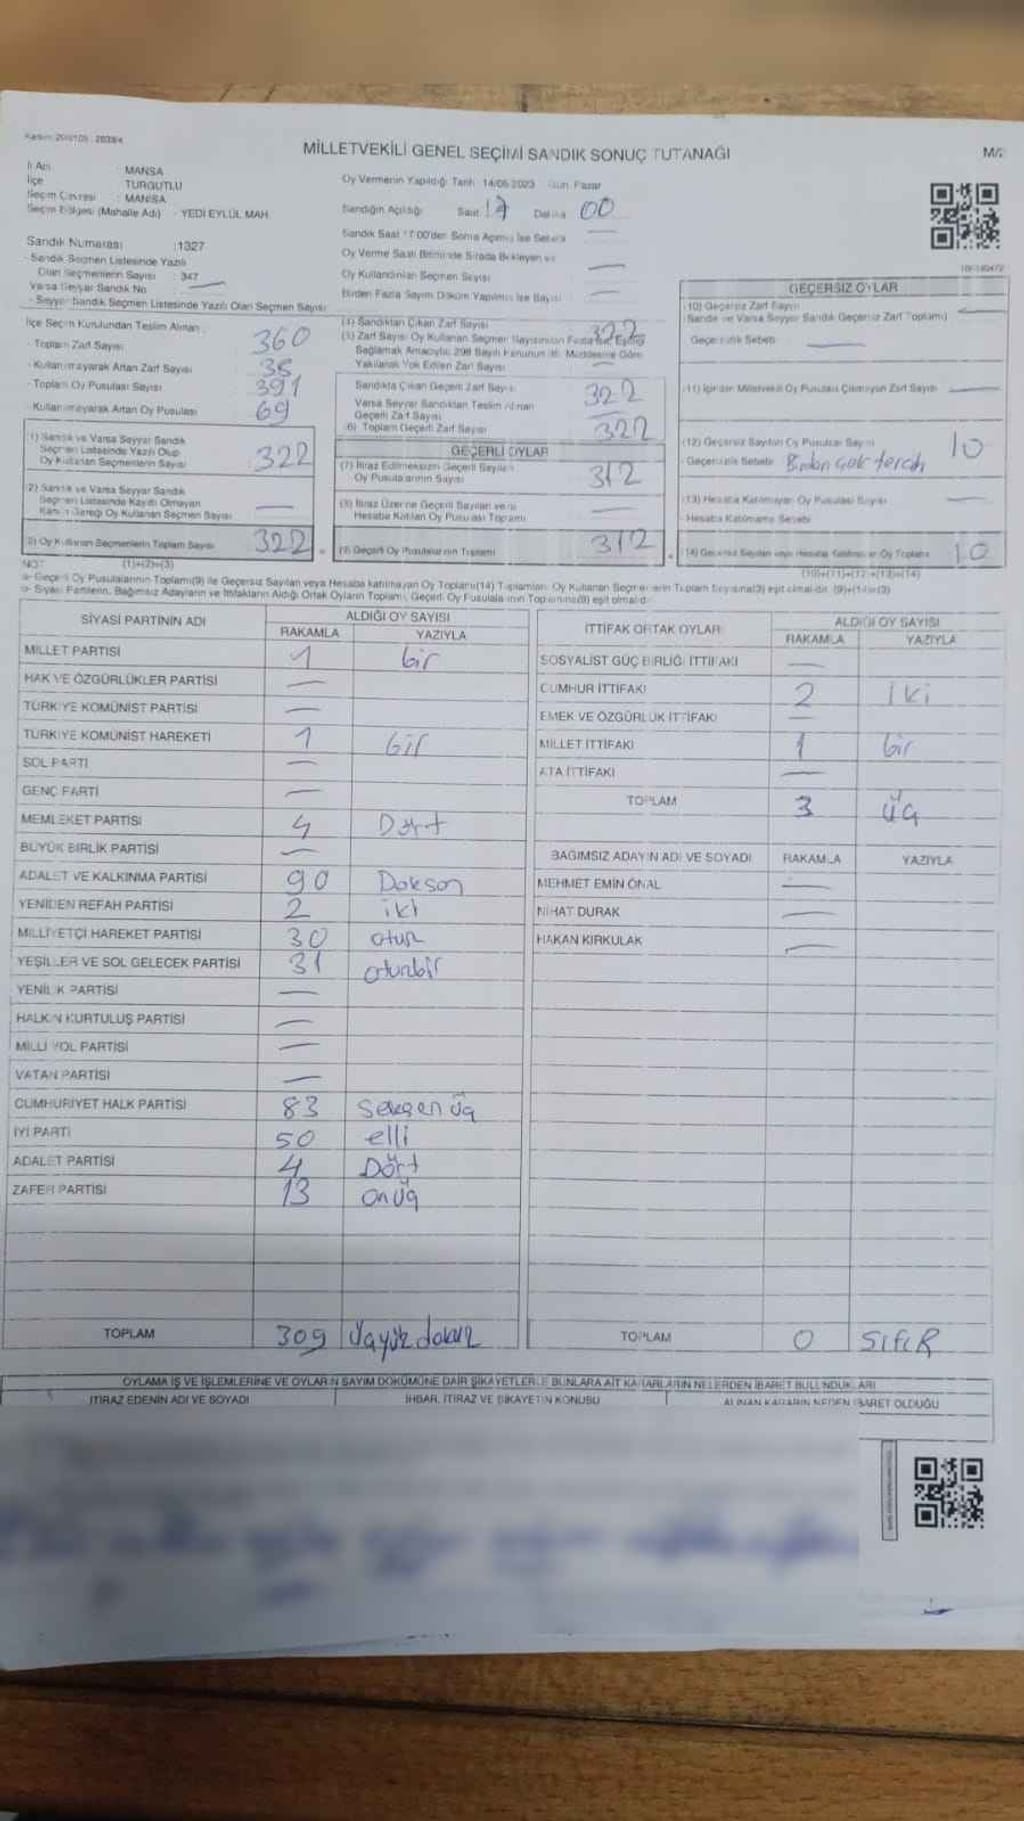 MİLLETVEKİLİ GENEL SEÇİMİ SANDIK SONUÇ TUTANAĞI
İl Adı : MANİSA
İlçe : TURGUTLU
Seçim Çevresi : MANİSA
Seçim Bölgesi (Mahalle Adı) : YEDİ EYLÜL MAH.
Sandık Numarası : 1327
Sandık Seçmen Listesinde Yazılı
Olan Seçmenlerin Sayısı : 347
Varsa Seyyar Sandık No
Seyyar Sandık Seçmen Listesinde Yazılı Olan Seçmen Sayısı
Oy Vermenin Yapıldığı Tarih 14/05/2023 Gün: Pazar
Sandığın Açıldığı Saat 17 Dakika 00
Sandık Saat 17:00'den Sonra Açılmış İse Sebebi
Oy Verme Saati Bitiminde Sırada Bekleyen ve
Oy Kullandırılan Seçmen Sayısı
Birden Fazla Sayım Döküm Yapılmış İse Sayısı
İlçe Seçim Kurulundan Teslim Alınan
- Toplam Zarf Sayısı 360
- Kullanılmayarak Artan Zarf Sayısı 38
- Toplam Oy Pusulası Sayısı 391
- Kullanılmayarak Artan Oy Pusulası 69
(1) Sandık ve Varsa Seyyar Sandık
Seçmen Listesinde Yazılı Olup
Oy Kullanan Seçmenlerin Sayısı 322
(2) Sandık ve Varsa Seyyar Sandık
Seçmen Listesinde Kayıtlı Olmayan
Kanun Gereği Oy Kullanan Seçmen Sayısı
(3) Oy Kullanan Seçmenlerin Toplam Sayısı 322
(1)+(2)=(3)
(4) Sandıktan Çıkan Zarf Sayısı 322
(5) Zarf Sayısı Oy Kullanan Seçmen Sayısından Fazla ise, Eşitliği
Sağlamak Amacıyla, 298 Sayılı Kanunun Maddesine Göre
Yakılarak Yok Edilen Zarf Sayısı
Sandıkta Çıkan Geçerli Zarf Sayısı 322
Varsa Seyyar Sandıktan Teslim Alınan
Geçerli Zarf Sayısı
(6) Toplam Geçerli Zarf Sayısı 322
GEÇERLİ OYLAR
(7) İtiraz Edilmeksizin Geçerli Sayılan
Oy Pusulalarının Sayısı 312
(8) İtiraz Üzerine Geçerli Sayılan veya
Hesaba Katılan Oy Pusulası Toplamı
(9) Geçerli Oy Pusulalarının Toplamı 312
GEÇERSİZ OYLAR
(10) Geçersiz Zarf Sayısı
(Sandık ve Varsa Seyyar Sandık Geçersiz Zarf Toplamı)
Geçersizlik Sebebi
(11) İçinden Milletvekili Oy Pusulası Çıkmayan Zarf Sayısı
(12) Geçersiz Sayılan Oy Pusulası Sayısı 10
Geçersizlik Sebebi Birden çok tercih
(13) Hesaba Katılmayan Oy Pusulası Sayısı
- Hesaba Katılmama Sebebi
(14) Geçersiz Sayılan veya Hesaba Katılmayan Oy Toplamı 10
(10)+(11)+(12)+(13)=(14)
NOT:
- Geçerli Oy Pusulalarının Toplamı(9) ile Geçersiz Sayılan veya Hesaba katılmayan Oy Toplamı(14) Toplamları, Oy Kullanan Seçmenlerin Toplam Sayısına(3) eşit olmalıdır. (9)+(14)=(3)
- Siyasi Partilerin, Bağımsız Adayların ve İttifakların Aldığı Ortak Oyların Toplamı, Geçerli Oy Pusulalarının Toplamına(9) eşit olmalıdır.
SİYASİ PARTİNİN ADI ALDIĞI OY SAYISI
RAKAMLA YAZIYLA
MİLLET PARTİSİ 1 bir
HAK VE ÖZGÜRLÜKLER PARTİSİ
TÜRKİYE KOMÜNİST PARTİSİ
TÜRKİYE KOMÜNİST HAREKETİ 1 bir
SOL PARTİ
GENÇ PARTİ
MEMLEKET PARTİSİ 4 Dört
BÜYÜK BİRLİK PARTİSİ
ADALET VE KALKINMA PARTİSİ 90 Doksan
YENİDEN REFAH PARTİSİ 2 iki
MİLLİYETÇİ HAREKET PARTİSİ 30 otuz
YEŞİLLER VE SOL GELECEK PARTİSİ 31 otuzbir
YENİLİK PARTİSİ
HALKIN KURTULUŞ PARTİSİ
MİLLİ YOL PARTİSİ
VATAN PARTİSİ
CUMHURİYET HALK PARTİSİ 83 seksen üç
İYİ PARTİ 50 elli
ADALET PARTİSİ 4 Dört
ZAFER PARTİSİ 13 onüç
TOPLAM 309 üçyüz dokuz
İTTİFAK ORTAK OYLARI ALDIĞI OY SAYISI
RAKAMLA YAZIYLA
SOSYALİST GÜÇ BİRLİĞİ İTTİFAKI
CUMHUR İTTİFAKI 2 iki
EMEK VE ÖZGÜRLÜK İTTİFAKI
MİLLET İTTİFAKI 1 bir
ATA İTTİFAKI
TOPLAM 3 üç
BAĞIMSIZ ADAYIN ADI VE SOYADI RAKAMLA YAZIYLA
MEHMET EMİN ÖNAL
NİHAT DURAK
HAKAN KIRKULAK
TOPLAM 0 SIFIR
OYLAMA İŞ VE İŞLEMLERİNE VE OYLARIN SAYIM DÖKÜMÜNE DAİR ŞİKAYETLERLE BUNLARA AİT KARARLARIN NELERDEN İBARET BULUNDUKLARI
İTİRAZ EDENİN ADI VE SOYADI İHBAR, İTİRAZ VE ŞİKAYETİN KONUSU ALINAN KARARIN NEDEN İBARET OLDUĞU